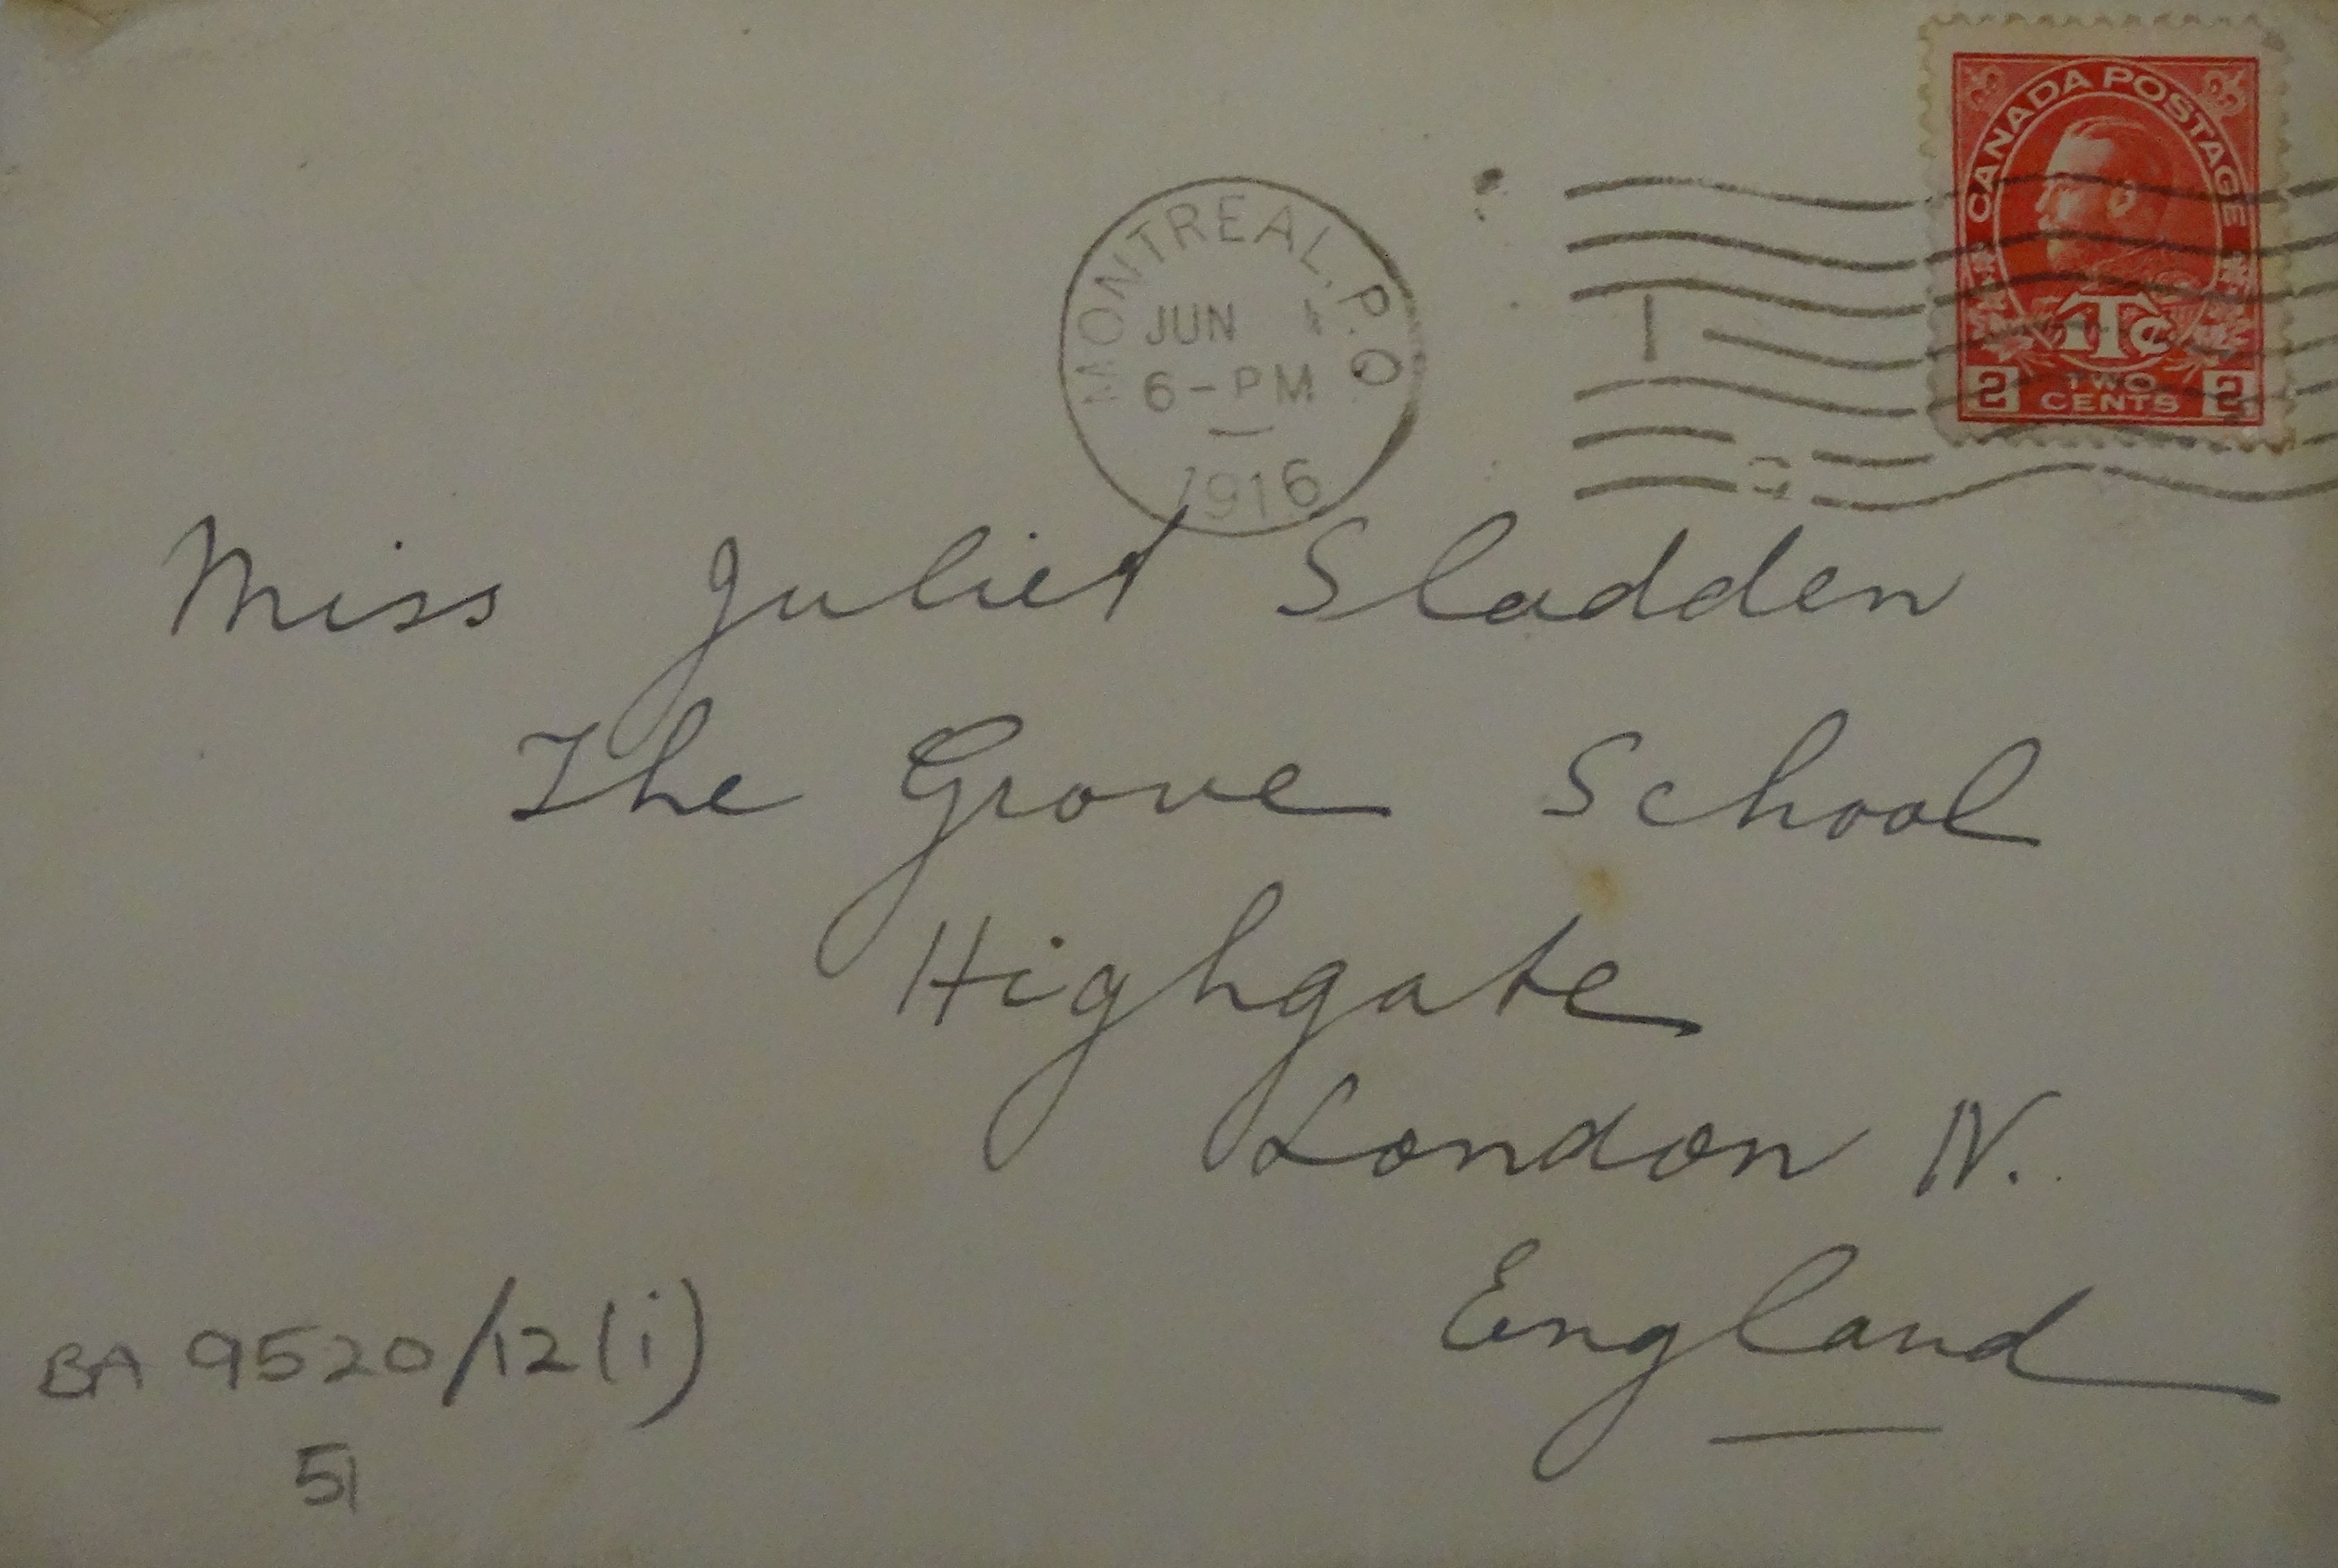 CANADA POSTAGE
1Tc
2 TWO CENTS 2
MONTREAL, P.Q
JUN 1
6-PM
1916
Miss Juliet Sladden
The Grove School
Highgate
London N.
England
BA 9520/12(i)
51